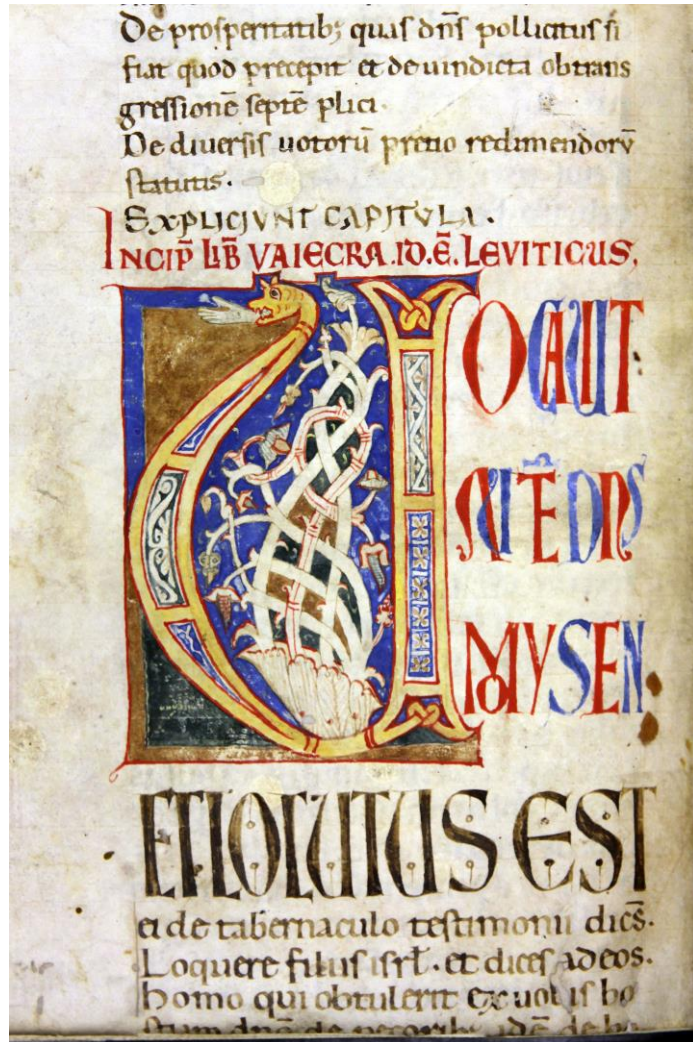 De prosperitatibꝫ quas dn̄s pollicitus si
fiat quod precepit et de uindicta ob trans
gressionē septē plici.
De diuersis uotorū precio redimendorū
statutis.
EXPLICIVNT CAPITVLA.
INCIP̄ LIB̄ VAIECRA.ID.Ē.LEVITICUS,
VOCAUIT
AUTĒ DN̄S
MOYSEN
ET LOCUTUS EST
ei de tabernaculo testimonii dicēs.
Loquere filiis isrł. et dices ad eos.
homo qui obtulerit ex uobis ho
stiam dn̄o de pecoribꝫ id ē de bo